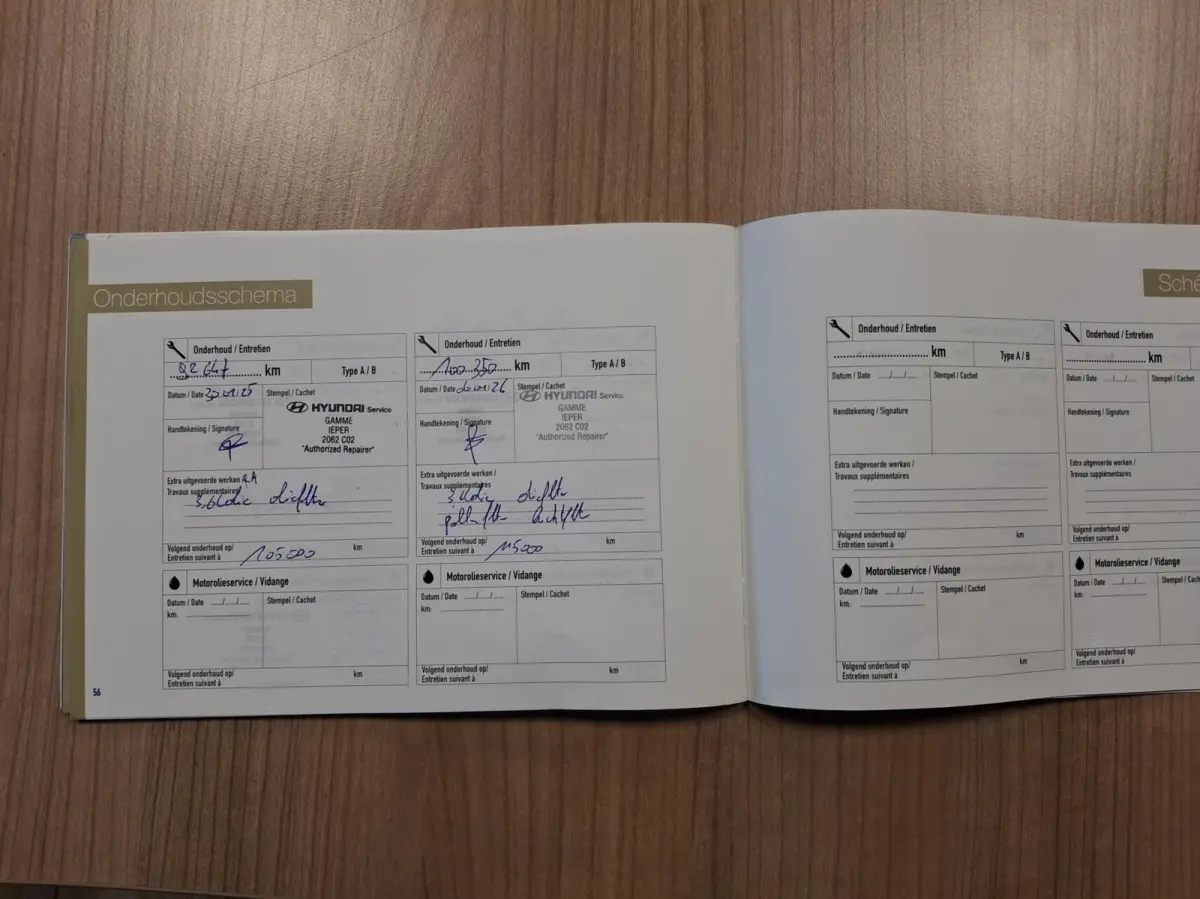 Onderhoudsschema
Onderhoud / Entretien
92 647 km
Type A / B
Datum / Date
Stempel / Cachet
HYUNDAI Service
GAMME
IEPER
2062 C02
"Authorized Repairer"
Handtekening / Signature
Extra uitgevoerde werken /
Travaux supplémentaires
Volgend onderhoud op/
Entretien suivant à 105000 km
Motorolieservice / Vidange
Datum / Date __/__/__
Stempel / Cachet
km:
Volgend onderhoud op/
Entretien suivant à
km
Onderhoud / Entretien
100.350 km
Type A / B
Datum / Date
Stempel / Cachet
HYUNDAI Service
GAMME
IEPER
2062 C02
"Authorized Repairer"
Handtekening / Signature
Extra uitgevoerde werken /
Travaux supplémentaires
Volgend onderhoud op/
Entretien suivant à 115000 km
Motorolieservice / Vidange
Datum / Date __/__/__
Stempel / Cachet
km:
Volgend onderhoud op/
Entretien suivant à
km
56
Sché
Onderhoud / Entretien
km
Type A / B
Datum / Date __/__/__
Stempel / Cachet
Handtekening / Signature
Extra uitgevoerde werken /
Travaux supplémentaires
Volgend onderhoud op/
Entretien suivant à
km
Motorolieservice / Vidange
Datum / Date __/__/__
Stempel / Cachet
km:
Volgend onderhoud op/
Entretien suivant à
km
Onderhoud / Entretien
km
Datum / Date __/__/__
Stempel / Cachet
Handtekening / Signature
Extra uitgevoerde werken /
Travaux supplémentaires
Volgend onderhoud op/
Entretien suivant à
Motorolieservice / Vidange
Datum / Date __/__/__
Stempel / Cac
km:
Volgend onderhoud op/
Entretien suivant à